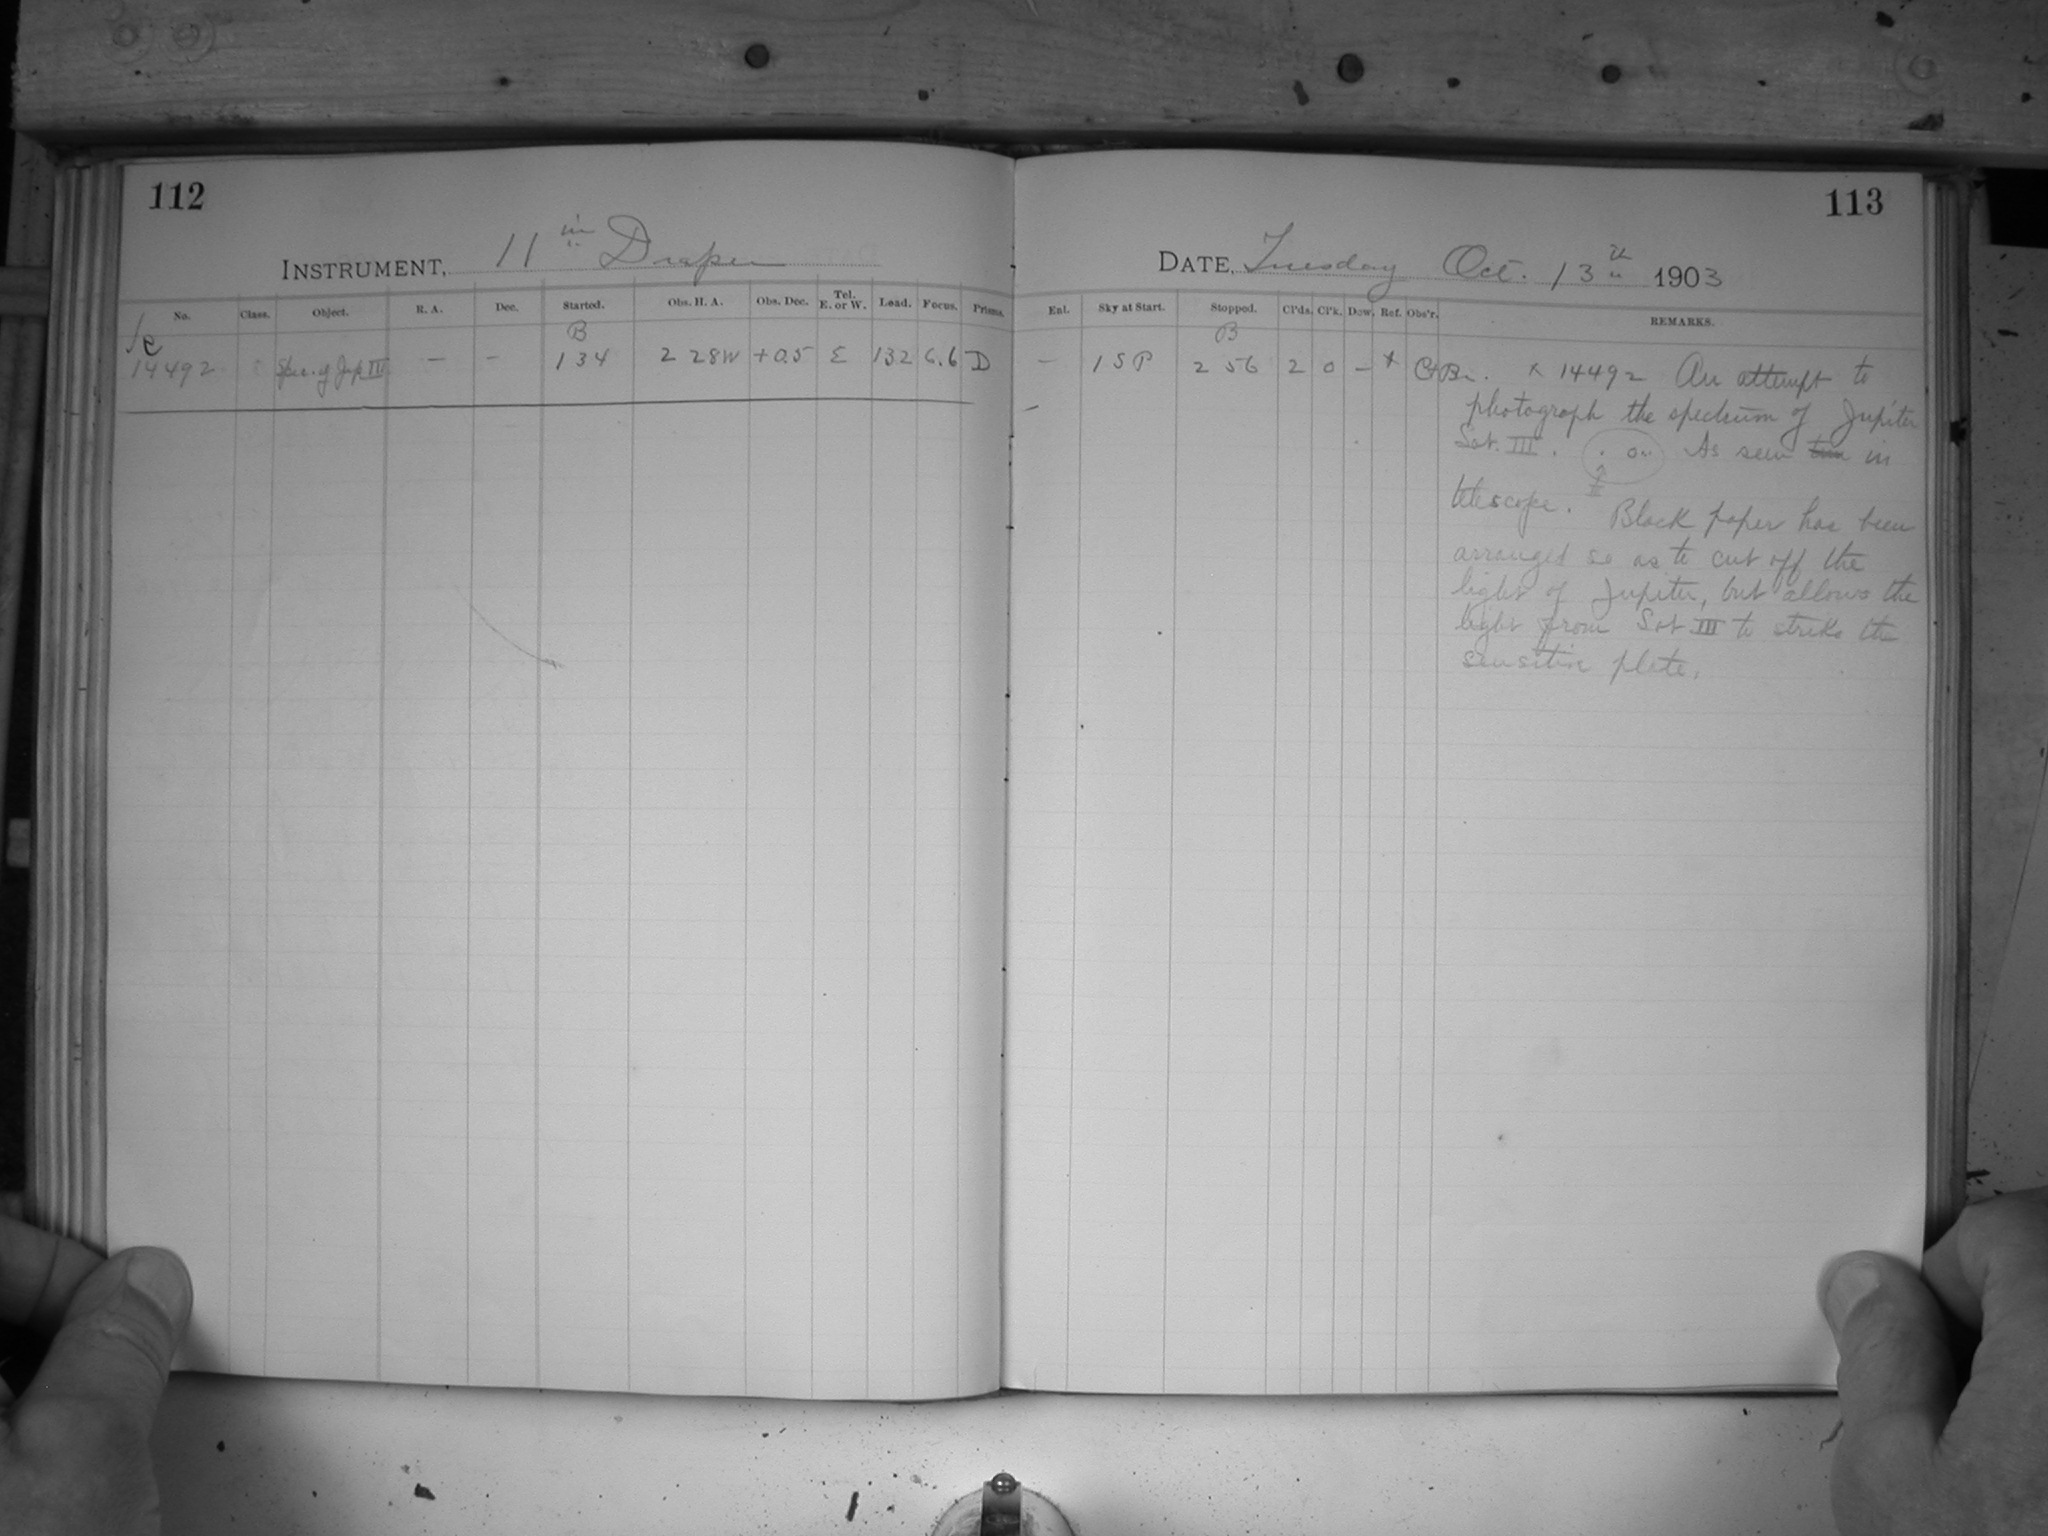 112
INSTRUMENT, 11 in Draper
No. Class. Object. R. A. Dec. Started. Obs. H. A. Obs. Dec. Tel. E. or W. Lead. Focus. Prisms.
B
14492 Spec. of Jup III — — 1 34 2 28W +0.5 E 132 6.6 D
113
DATE, Tuesday Oct. 13th 1903
Enl. Sky at Start. Stopped. Cl'ds. Cl'k. Dew. Ref. Obs'r. REMARKS.
B
— 1 5 P 2 56 2 0 – x x 14492 An attempt to
photograph the spectrum of Jupiter
Sat. III. As seen in
III
telescope. Black paper has been
arranged so as to cut off the
light of Jupiter, but allows the
light from Sat III to strike the
sensitive plate.